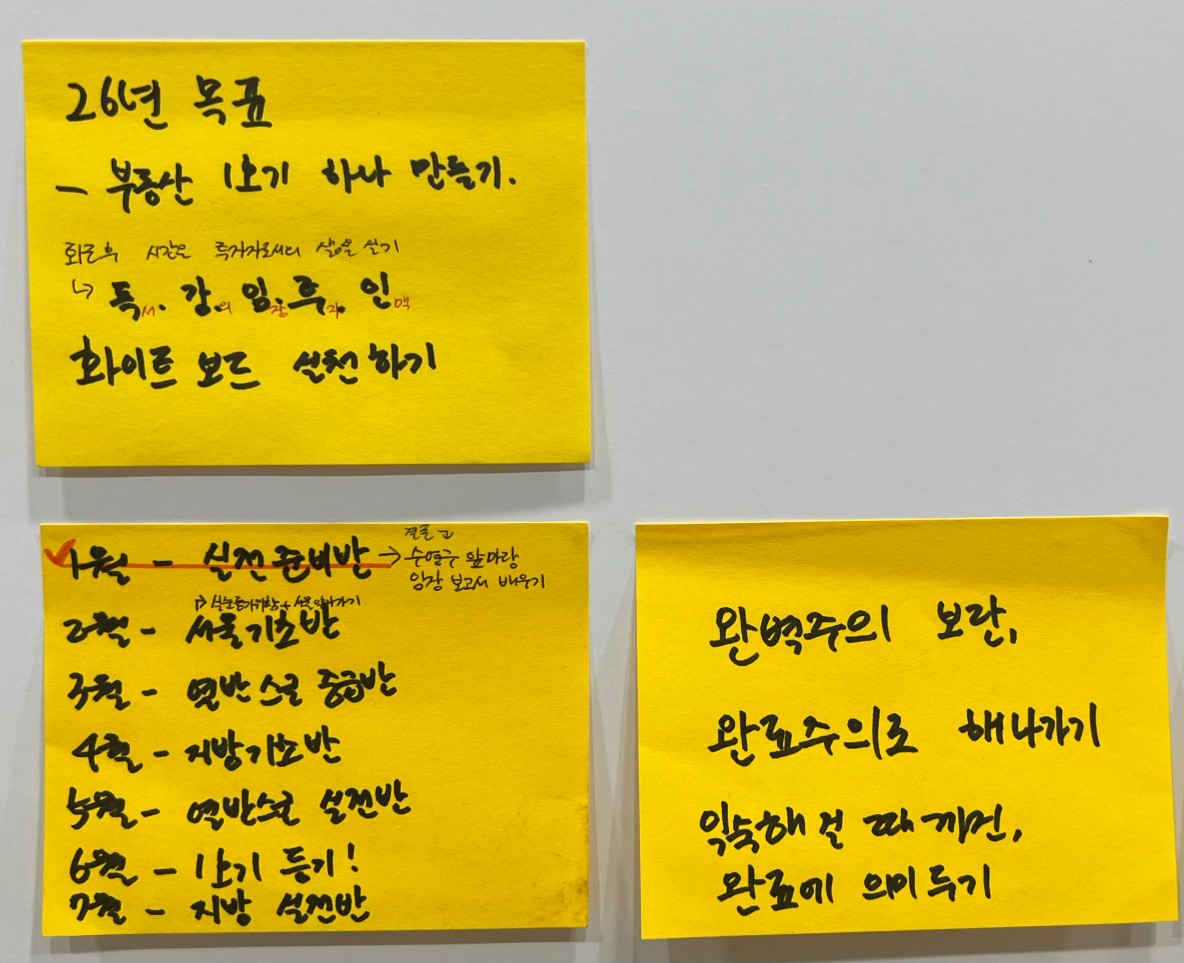 26년 목표
- 부동산 1호기 하나 만들기.
시간은 투자자로서의 삶을 살기
↳ 독서. 강의. 임장. 투자. 인맥
화이트 보드 실천하기
✓ 1월 - 실전준비반 → 결론 및
수영구 앞마당
임장 보고서 배우기
2월 - 서울기초반
3월 - 열반스쿨 중급반
4월 - 지방기초반
5월 - 열반스쿨 실전반
6월 - 1호기 듣기!
7월 - 지방 실전반
완벽주의 보단,
완료주의로 해나가기
익숙해질 때 까진,
완료에 의미두기